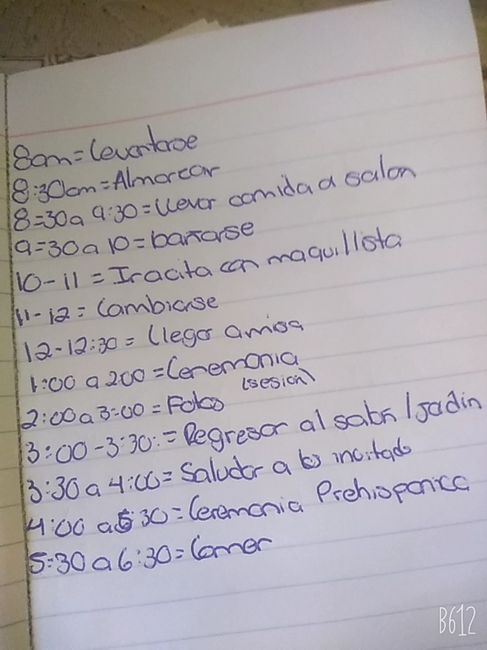 8am = Levantarse
8:30am = Almorzar
8=30 a 9:30 = llevar comida a salon
9=30 a 10 = bañarse
10-11 = Ir a cita con maquillista
11-12 = Cambiarse
12-12:30 = llegar a misa
1:00 a 200 = Ceremonia
2:00 a 3:00 = Fotos (sesion)
3:00-3:30: = Regresar al salon / jardin
3:30 a 4:00 = Saludar a los invitado
4:00 a 5:30 = Ceremonia Prehispanica
5=30 a 6:30 = Comer
B612